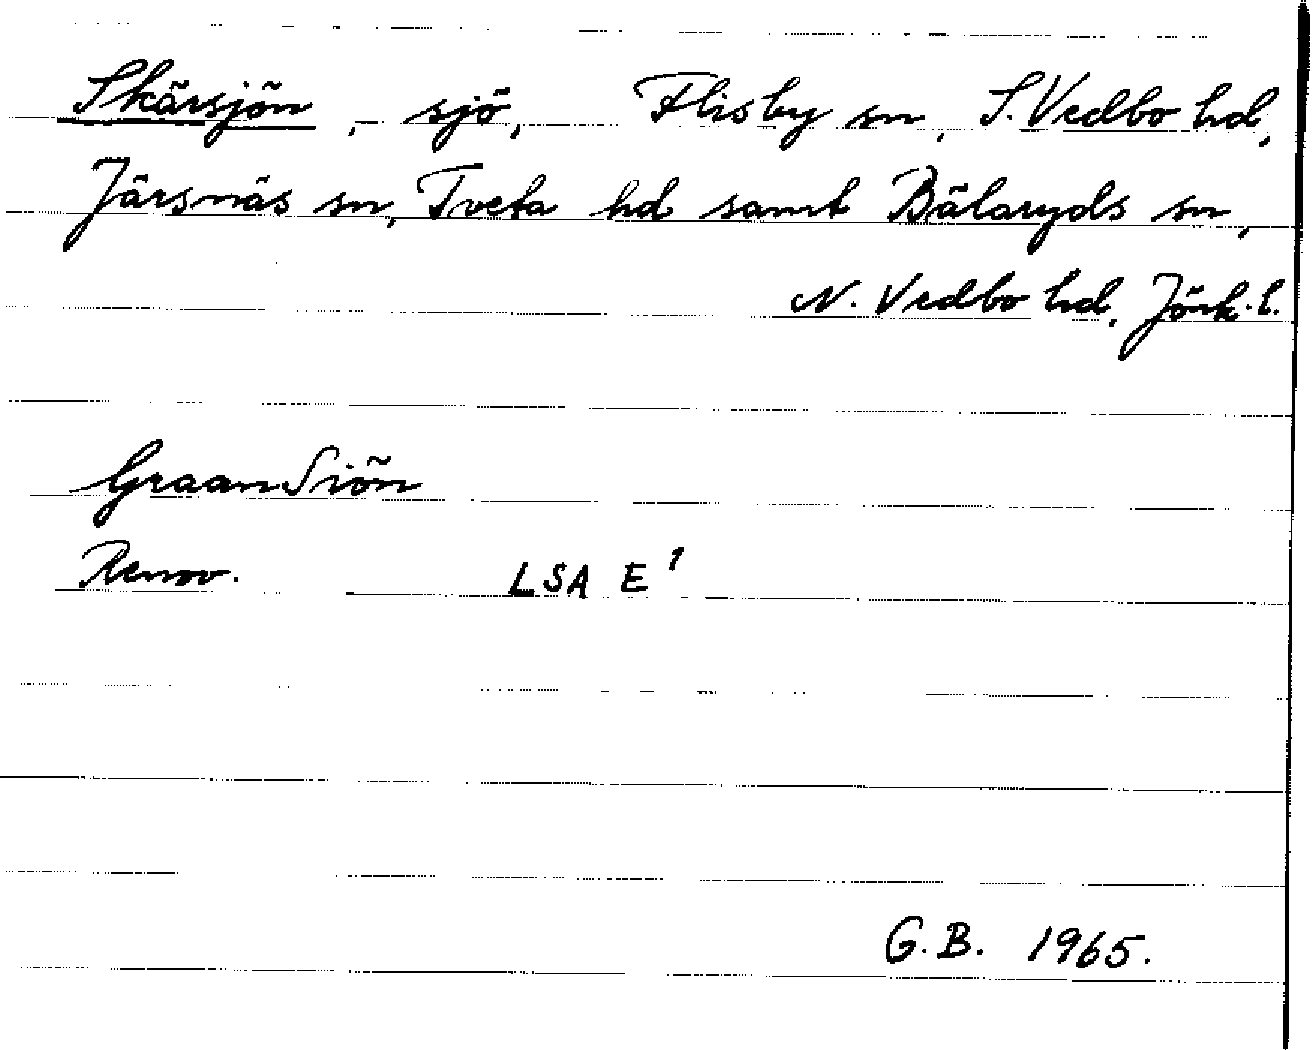 Skärsjön, sjö, Flisby sn, S. Vedbo hd,
Järsnäs sn, Tveta hd samt Bälaryds sn,
N. Vedbo hd, Jönk. l.
GraanSiön
Renov. LSA E 1
G.B. 1965.